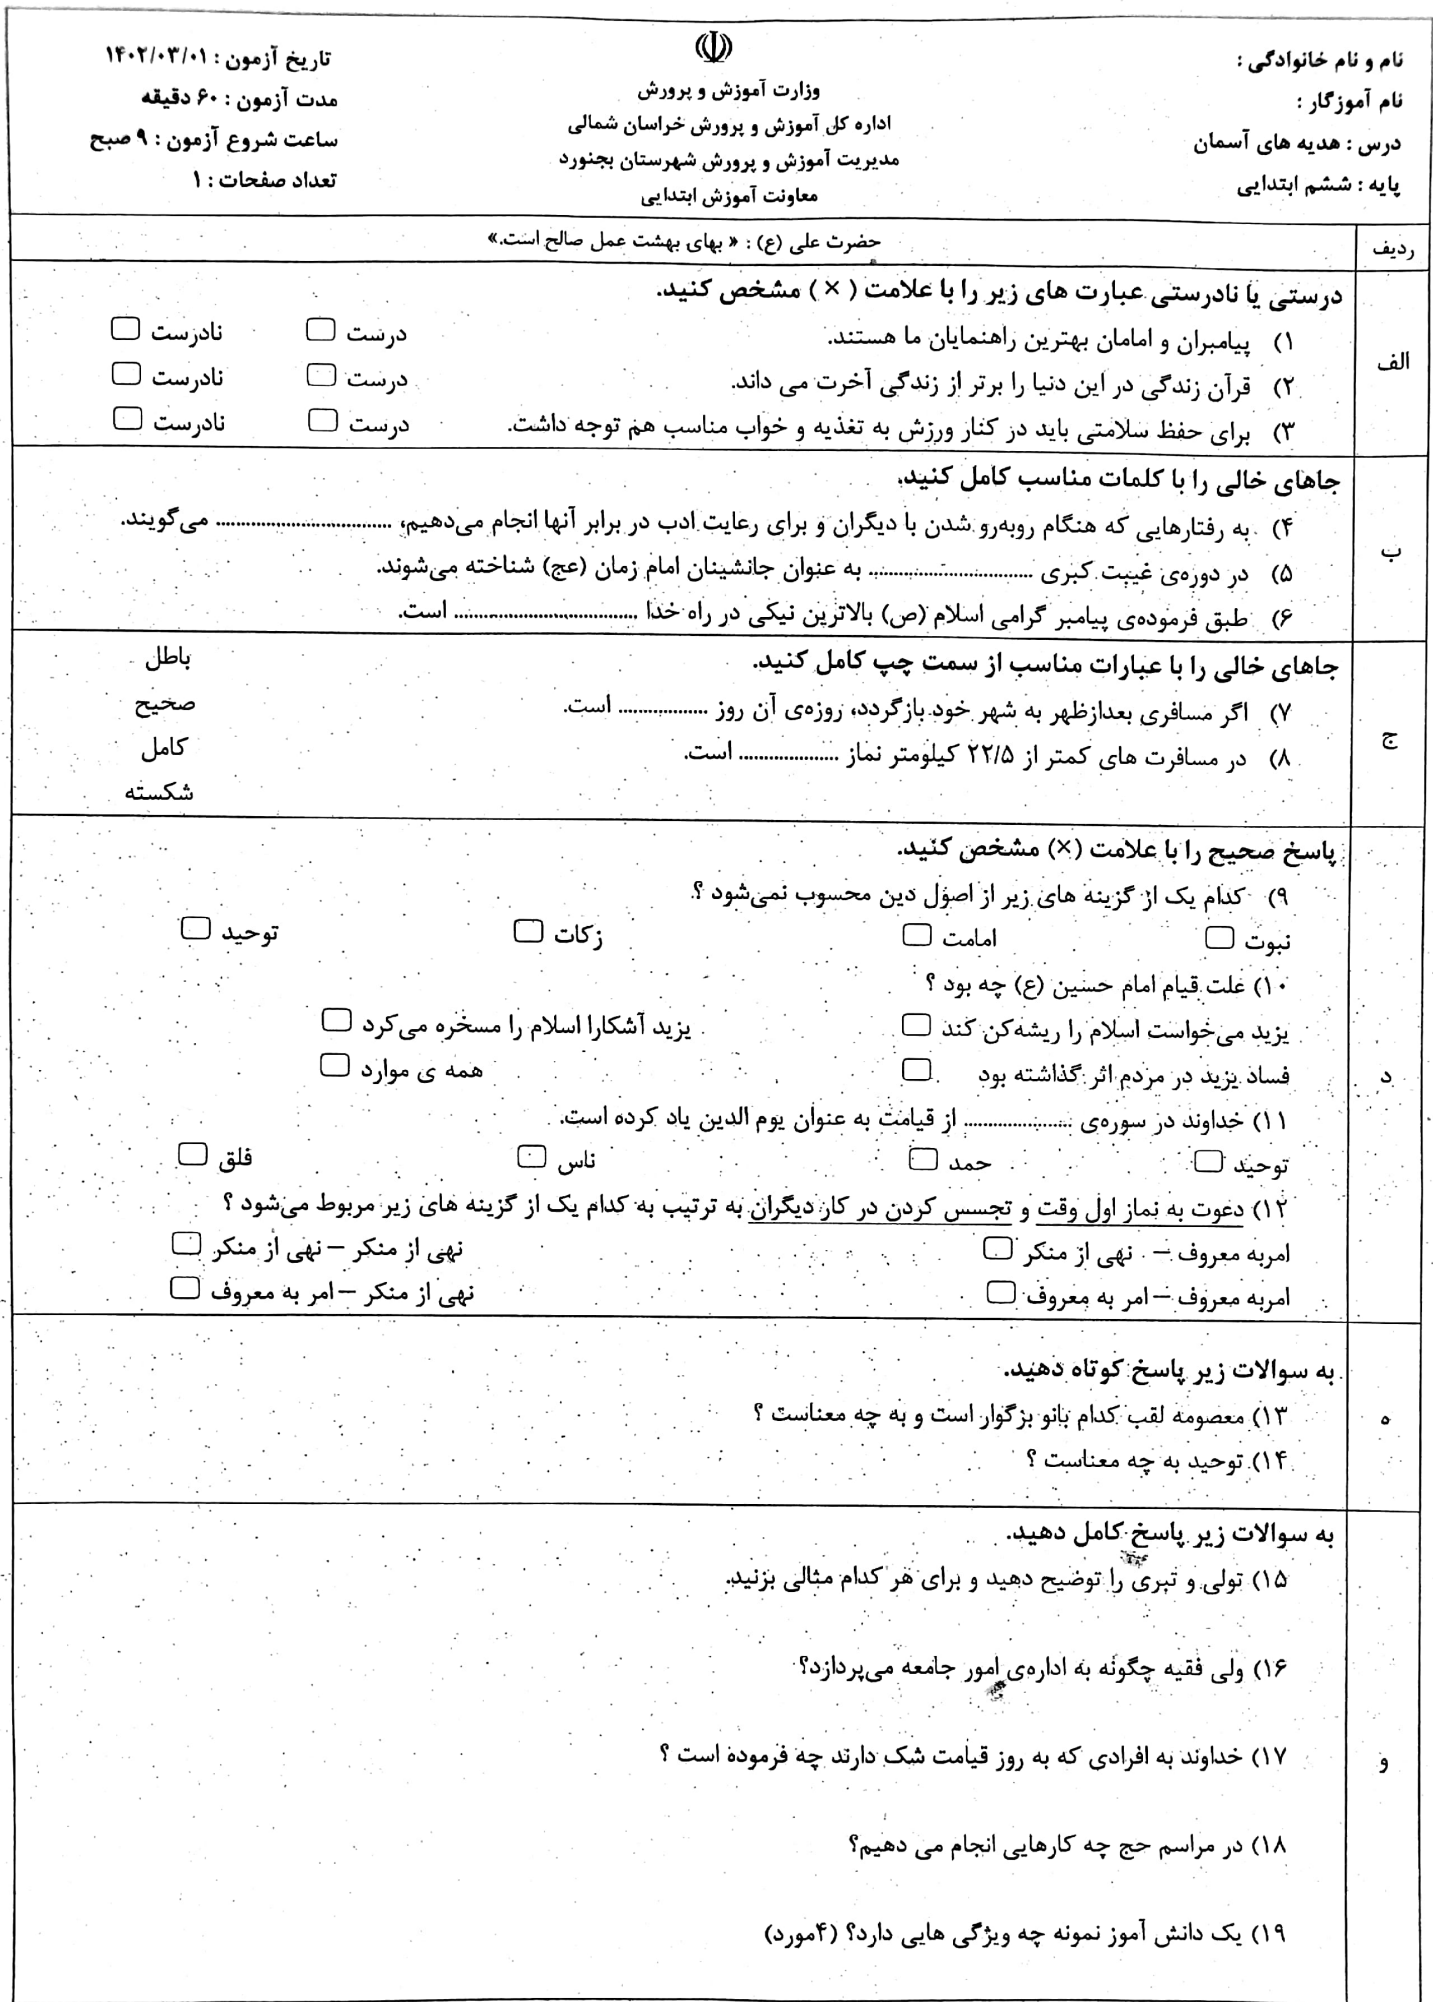 نام و نام خانوادگی :
نام آموزگار :
درس : هدیه های آسمان
پایه : ششم ابتدایی
وزارت آموزش و پرورش
اداره کل آموزش و پرورش خراسان شمالی
مدیریت آموزش و پرورش شهرستان بجنورد
معاونت آموزش ابتدایی
تاریخ آزمون : ۱۴۰۲/۰۳/۰۱
مدت آزمون : ۶۰ دقیقه
ساعت شروع آزمون : ۹ صبح
تعداد صفحات : ۱
ردیف
حضرت علی (ع) : « بهای بهشت عمل صالح است.»
الف
درستی یا نادرستی عبارت های زیر را با علامت ( × ) مشخص کنید.
۱) پیامبران و امامان بهترین راهنمایان ما هستند. درست نادرست
۲) قرآن زندگی در این دنیا را برتر از زندگی آخرت می داند. درست نادرست
۳) برای حفظ سلامتی باید در کنار ورزش به تغذیه و خواب مناسب هم توجه داشت. درست نادرست
ب
جاهای خالی را با کلمات مناسب کامل کنید.
۴) به رفتارهایی که هنگام روبه‌رو شدن با دیگران و برای رعایت ادب در برابر آنها انجام می‌دهیم، .................................. می‌گویند.
۵) در دوره‌ی غیبت کبری ................................ به عنوان جانشینان امام زمان (عج) شناخته می‌شوند.
۶) طبق فرموده‌ی پیامبر گرامی اسلام (ص) بالاترین نیکی در راه خدا .................................... است.
ج
جاهای خالی را با عبارات مناسب از سمت چپ کامل کنید.
۷) اگر مسافری بعدازظهر به شهر خود بازگردد، روزه‌ی آن روز .................. است.
۸) در مسافرت های کمتر از ۲۲/۵ کیلومتر نماز .................... است.
باطل
صحیح
کامل
شکسته
د
پاسخ صحیح را با علامت (×) مشخص کنید.
۹) کدام یک از گزینه های زیر از اصول دین محسوب نمی‌شود ؟
نبوت امامت زکات توحید
۱۰) علت قیام امام حسین (ع) چه بود ؟
یزید می‌خواست اسلام را ریشه‌کن کند یزید آشکارا اسلام را مسخره می‌کرد
فساد یزید در مردم اثر گذاشته بود همه ی موارد
۱۱) خداوند در سوره‌ی ..................... از قیامت به عنوان یوم الدین یاد کرده است.
توحید حمد ناس فلق
۱۲) دعوت به نماز اول وقت و تجسس کردن در کار دیگران به ترتیب به کدام یک از گزینه های زیر مربوط می‌شود ؟
امربه معروف – نهی از منکر نهی از منکر – نهی از منکر
امربه معروف – امر به معروف نهی از منکر – امر به معروف
ه
به سوالات زیر پاسخ کوتاه دهید.
۱۳) معصومه لقب کدام بانو بزگوار است و به چه معناست ؟
۱۴) توحید به چه معناست ؟
و
به سوالات زیر پاسخ کامل دهید.
۱۵) تولی و تبری را توضیح دهید و برای هر کدام مثالی بزنید.
۱۶) ولی فقیه چگونه به اداره‌ی امور جامعه می‌پردازد؟
۱۷) خداوند به افرادی که به روز قیامت شک دارند چه فرموده است ؟
۱۸) در مراسم حج چه کارهایی انجام می دهیم؟
۱۹) یک دانش آموز نمونه چه ویژگی هایی دارد؟ (۴مورد)